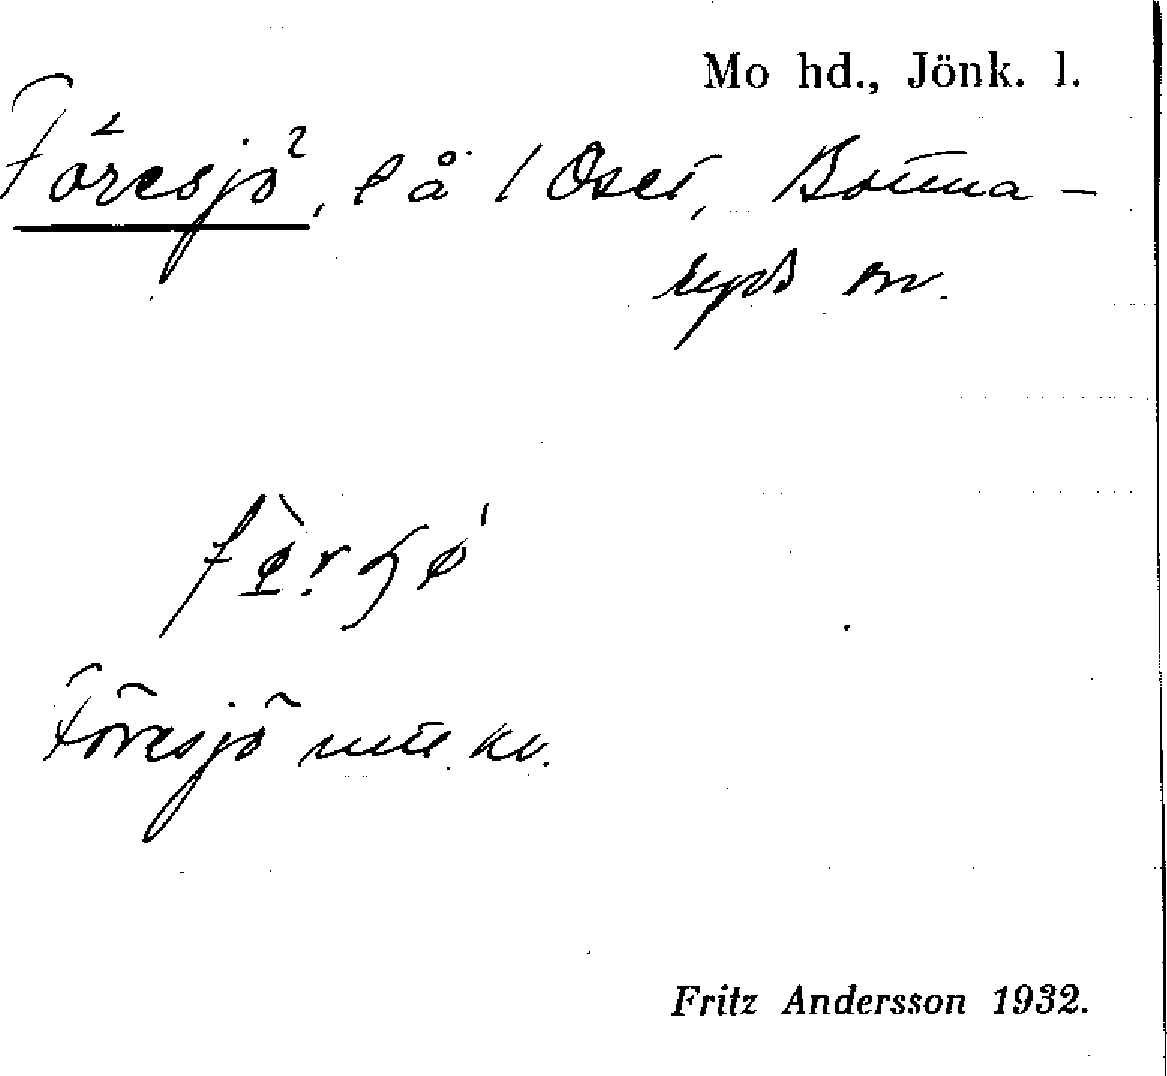 Mo hd., Jönk. l.
Föresjö, lå / Oset, Bottna-
ryds sn.
Föresjö
Fritz Andersson 1932.